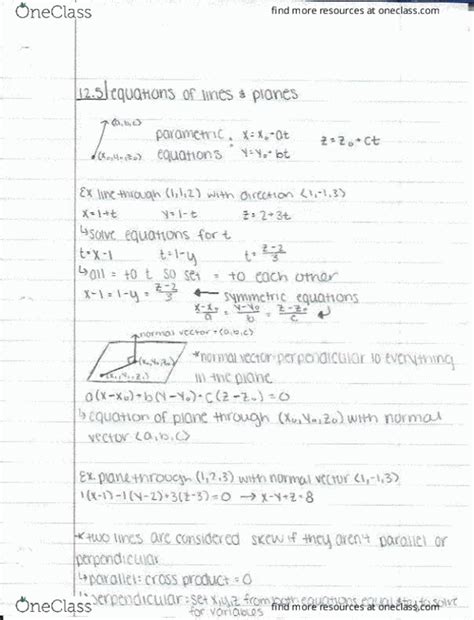 OneClass
find more resources at oneclass.com
12.5 equations of lines & planes
(a,b,c)
parametric : x=x₀+at z=z₀+ct
(x₀,y₀,z₀) equations y=y₀+bt
Ex line through (1,1,2) with direction <1,-1,3>
x=1+t y=1-t z=2+3t
↳solve equations for t
t=x-1 t=1-y t=z-2/3
↳all = to t so set = to each other
x-1=1-y=z-2/3 ← symmetric equations
x-x₀/a = y-y₀/b = z-z₀/c
normal vector=(a,b,c)
(x₀,y₀,z₀) *normal vector-perpendicular to everything
in the plane
a(x-x₀)+b(y-y₀)+c(z-z₀)=0
↳equation of plane through (x₀,y₀,z₀) with normal
vector <a,b,c>
Ex. plane through (1,2,3) with normal vector <1,-1,3>
1(x-1)-1(y-2)+3(z-3)=0 → x-y+z=8
*two lines are considered skew if they aren't parallel or
perpendicular
↳parallel: cross product = 0
perpendicular: set x,y,z from both equations equal to solve
for variables
OneClass
find more resources at oneclass.com